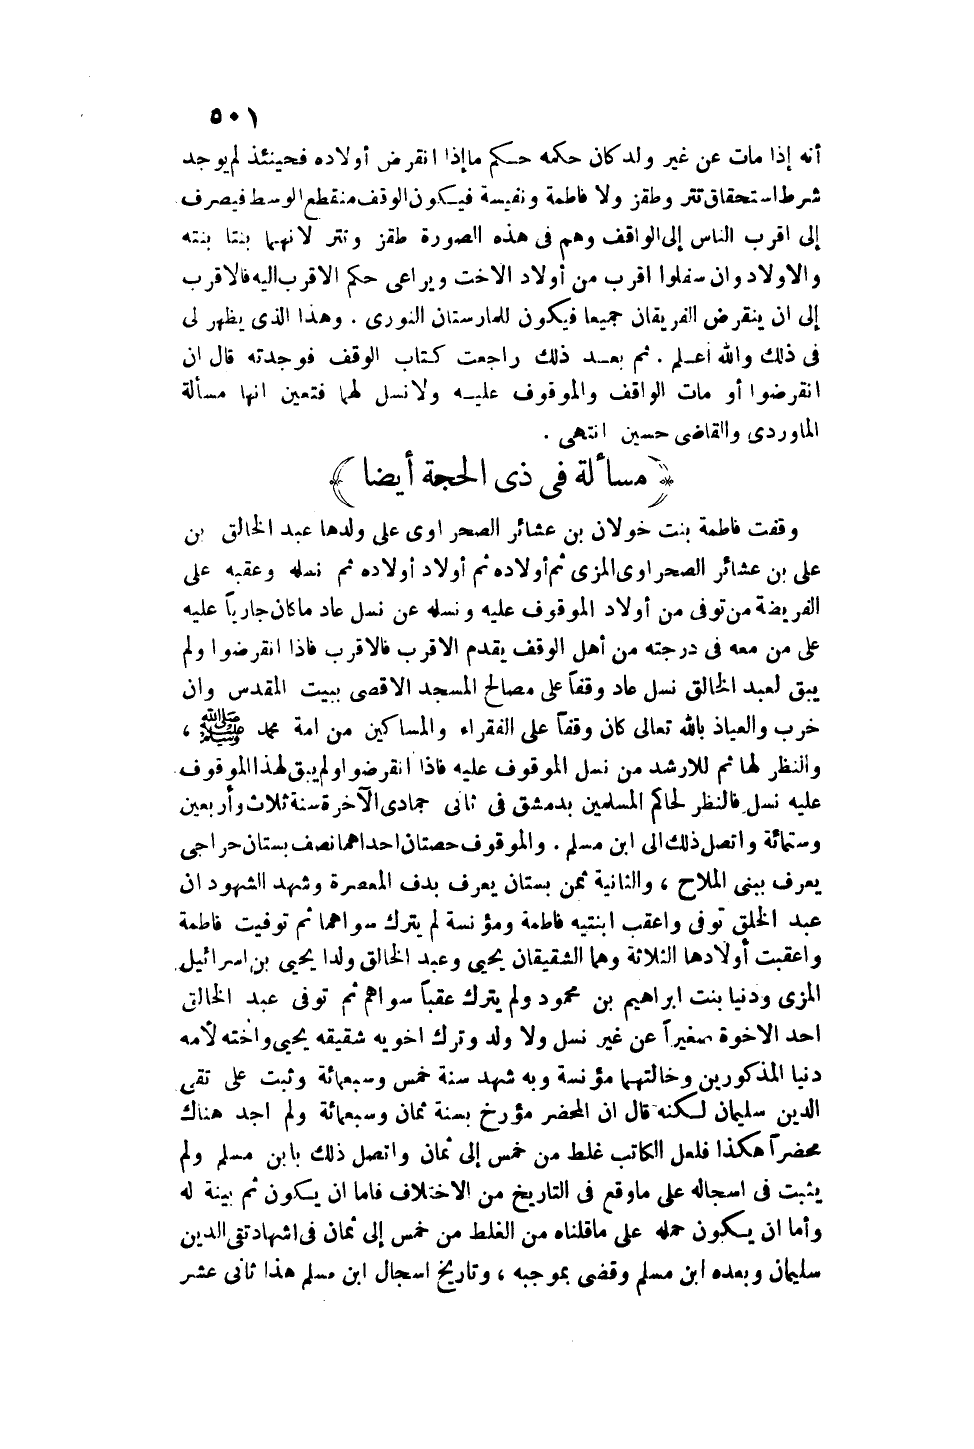 ٥٠١
أنه إذا مات عن غير ولد كان حكمه حكم ما إذا انقرض أولاده فحينئذ لم يوجد
شرط استحقاق تتر وطقز ولا فاطمة ونفيسة فيكون الوقف منقطع الوسط فيصرف
إلى اقرب الناس إلى الواقف وهم فى هذه الصورة طقز وتتر لانهما بنتا بنته
والاولاد وان سفلوا اقرب من أولاد الاخت ويراعى حكم الاقرب اليه فالاقرب
إلى ان ينقرض الفريقان جميعا فيكون للمارستان النورى . وهذا الذى يظهر لى
فى ذلك والله أعلم . ثم بعد ذلك راجعت كتاب الوقف فوجدته قال ان
انقرضوا أو مات الواقف والموقوف عليه ولا نسل لهما فتعين انها مسألة
الماوردى والقاضى حسين انتهى .
﴿ مسألة فى ذى الحجة أيضا ﴾
وقفت فاطمة بنت خولان بن عشائر الصحراوى على ولدها عبد الخالق بن
على بن عشائر الصحراوى المزى ثم أولاده ثم أولاد أولاده ثم نسله وعقبه على
الفريضة من توفى من أولاد الموقوف عليه ونسله عن نسل عاد ما كان جارياً عليه
على من معه فى درجته من أهل الوقف يقدم الاقرب فالاقرب فاذا انقرضوا ولم
يبق لعبد الخالق نسل عاد وقفاً على مصالح المسجد الاقصى ببيت المقدس وان
خرب والعياذ بالله تعالى كان وقفاً على الفقراء والمساكين من امة محمد ﷺ ،
والنظر لها ثم للارشد من نسل الموقوف عليه فاذا انقرضوا ولم يبق لهذا الموقوف
عليه نسل فالنظر لحاكم المسلمين بدمشق فى ثانى جمادى الآخرة سنة ثلاث وأربعين
وستمائة واتصل ذلك الى ابن مسلم . والموقوف حصتان احداهما نصف بستان حراجى
يعرف ببنى الملاح ، والثانية ثمن بستان يعرف بدف المعصرة وشهد الشهود ان
عبد الخلق توفى واعقب ابنتيه فاطمة ومؤنسة لم يترك سواهما ثم توفيت فاطمة
واعقبت أولادها الثلاثة وهما الشقيقان يحيى وعبد الخالق ولدا يحيى بن اسرائيل
المزى ودنيا بنت ابراهيم بن محمود ولم يترك عقباً سواهم ثم توفى عبد الخالق
احد الاخوة صغيراً عن غير نسل ولا ولد وترك اخويه شقيقه يحيى واخته لأمه
دنيا المذكورين وخالتهما مؤنسة وبه شهد سنة خمس وسبعمائة وثبت على تقى
الدين سليمان لكنه قال ان المحضر مؤرخ بسنة ثمان وسبعمائة ولم اجد هناك
محضراً هكذا فلعل الكاتب غلط من خمس إلى ثمان واتصل ذلك بابن مسلم ولم
يثبت فى اسجاله على ما وقع فى التاريخ من الاختلاف فاما ان يكون ثم بينة له
وأما ان يكون حمله على ما قلناه من الغلط من خمس إلى ثمان فى اشهاد تقى الدين
سليمان وبعده ابن مسلم وقضى بموجبه ، وتاريخ اسجال ابن مسلم هذا ثانى عشر